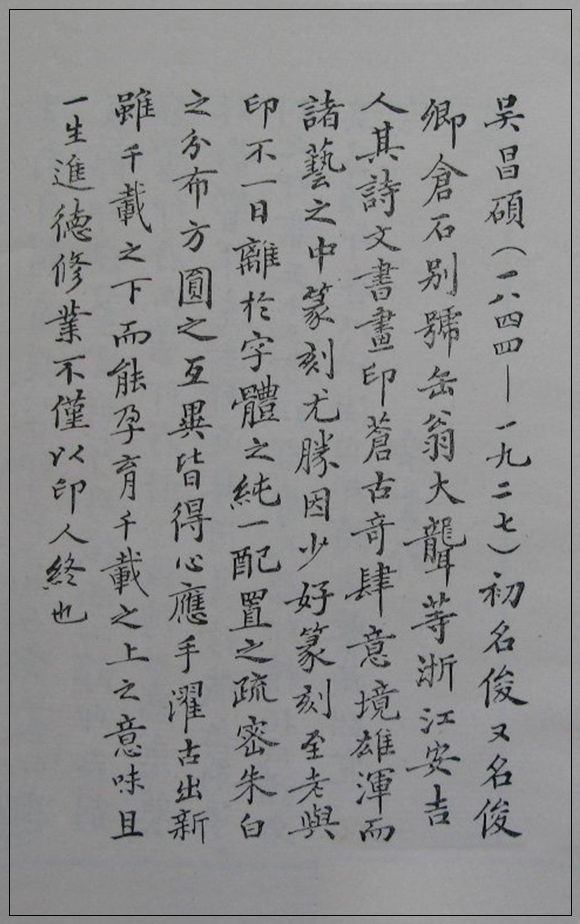 吳昌碩（一八四四—一九二七）初名俊又名俊
卿倉石別號缶翁大聾等浙江安吉
人其詩文書畫印蒼古奇肆意境雄渾而
諸藝之中篆刻尤勝因少好篆刻至老與
印不一日離於字體之純一配置之疏密朱白
之分布方圓之互異皆得心應手濯古出新
雖千載之下而能孕育千載之上之意味且
一生進德修業不僅以印人終也